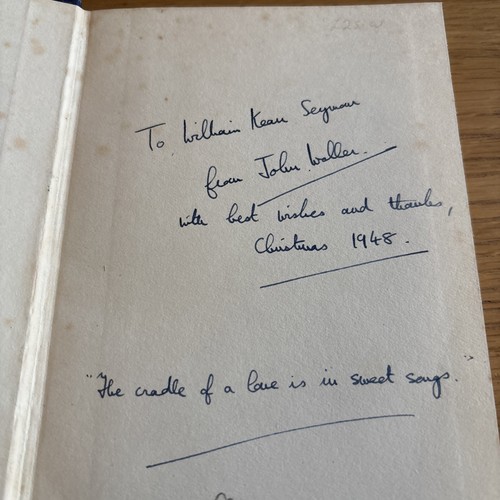 To William Kean Seymour
from John Waller.
with best wishes and thanks,
Christmas 1948.
"The cradle of a love is in sweet songs."